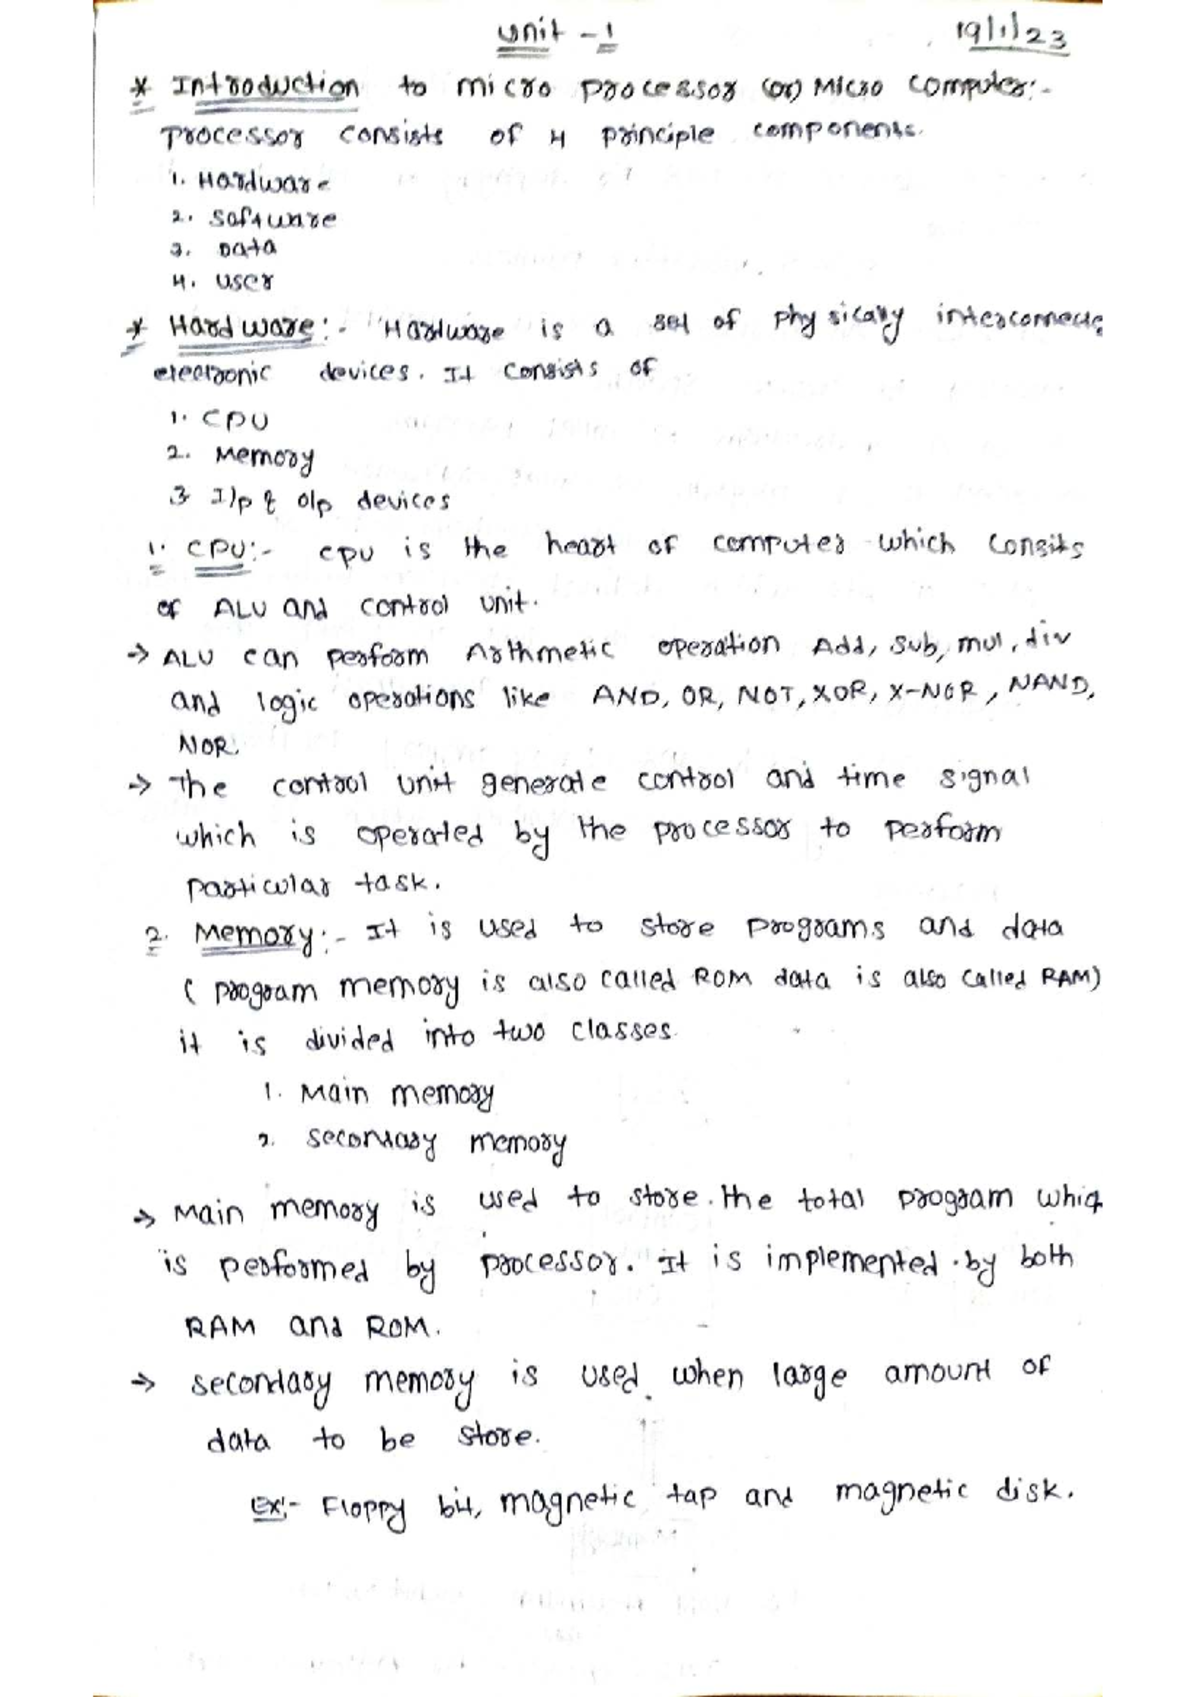 Unit - 1
19/1/23
* Introduction to micro processor (or) Micro computer:-
Processor consists of 4 principle components.
1. Hardware
2. Software
3. Data
4. User
* Hardware:- Hardware is a set of physically
electronic devices. It consists of
1. CPU
2. Memory
3 I/p & o/p devices
1. CPU:- cpu is the heart of computer which consits
of ALU and control unit.
→ ALU can perform Arthmetic operation Add, Sub, mul, div
and logic operations like AND, OR, NOT, XOR, X-NOR, NAND,
NOR.
→ The control unit generate control and time signal
which is operated by the processor to perform
particular task.
2. Memory:- It is used to store programs and data
( program memory is also called ROM data is also called RAM)
it is divided into two classes.
1. Main memory
2. secondary memory
→ Main memory is used to store the total program whic
is performed by processor. It is implemented by both
RAM and ROM.
→ secondary memory is used when large amount of
data to be store.
Ex:- Floppy bit, magnetic tap and magnetic disk.